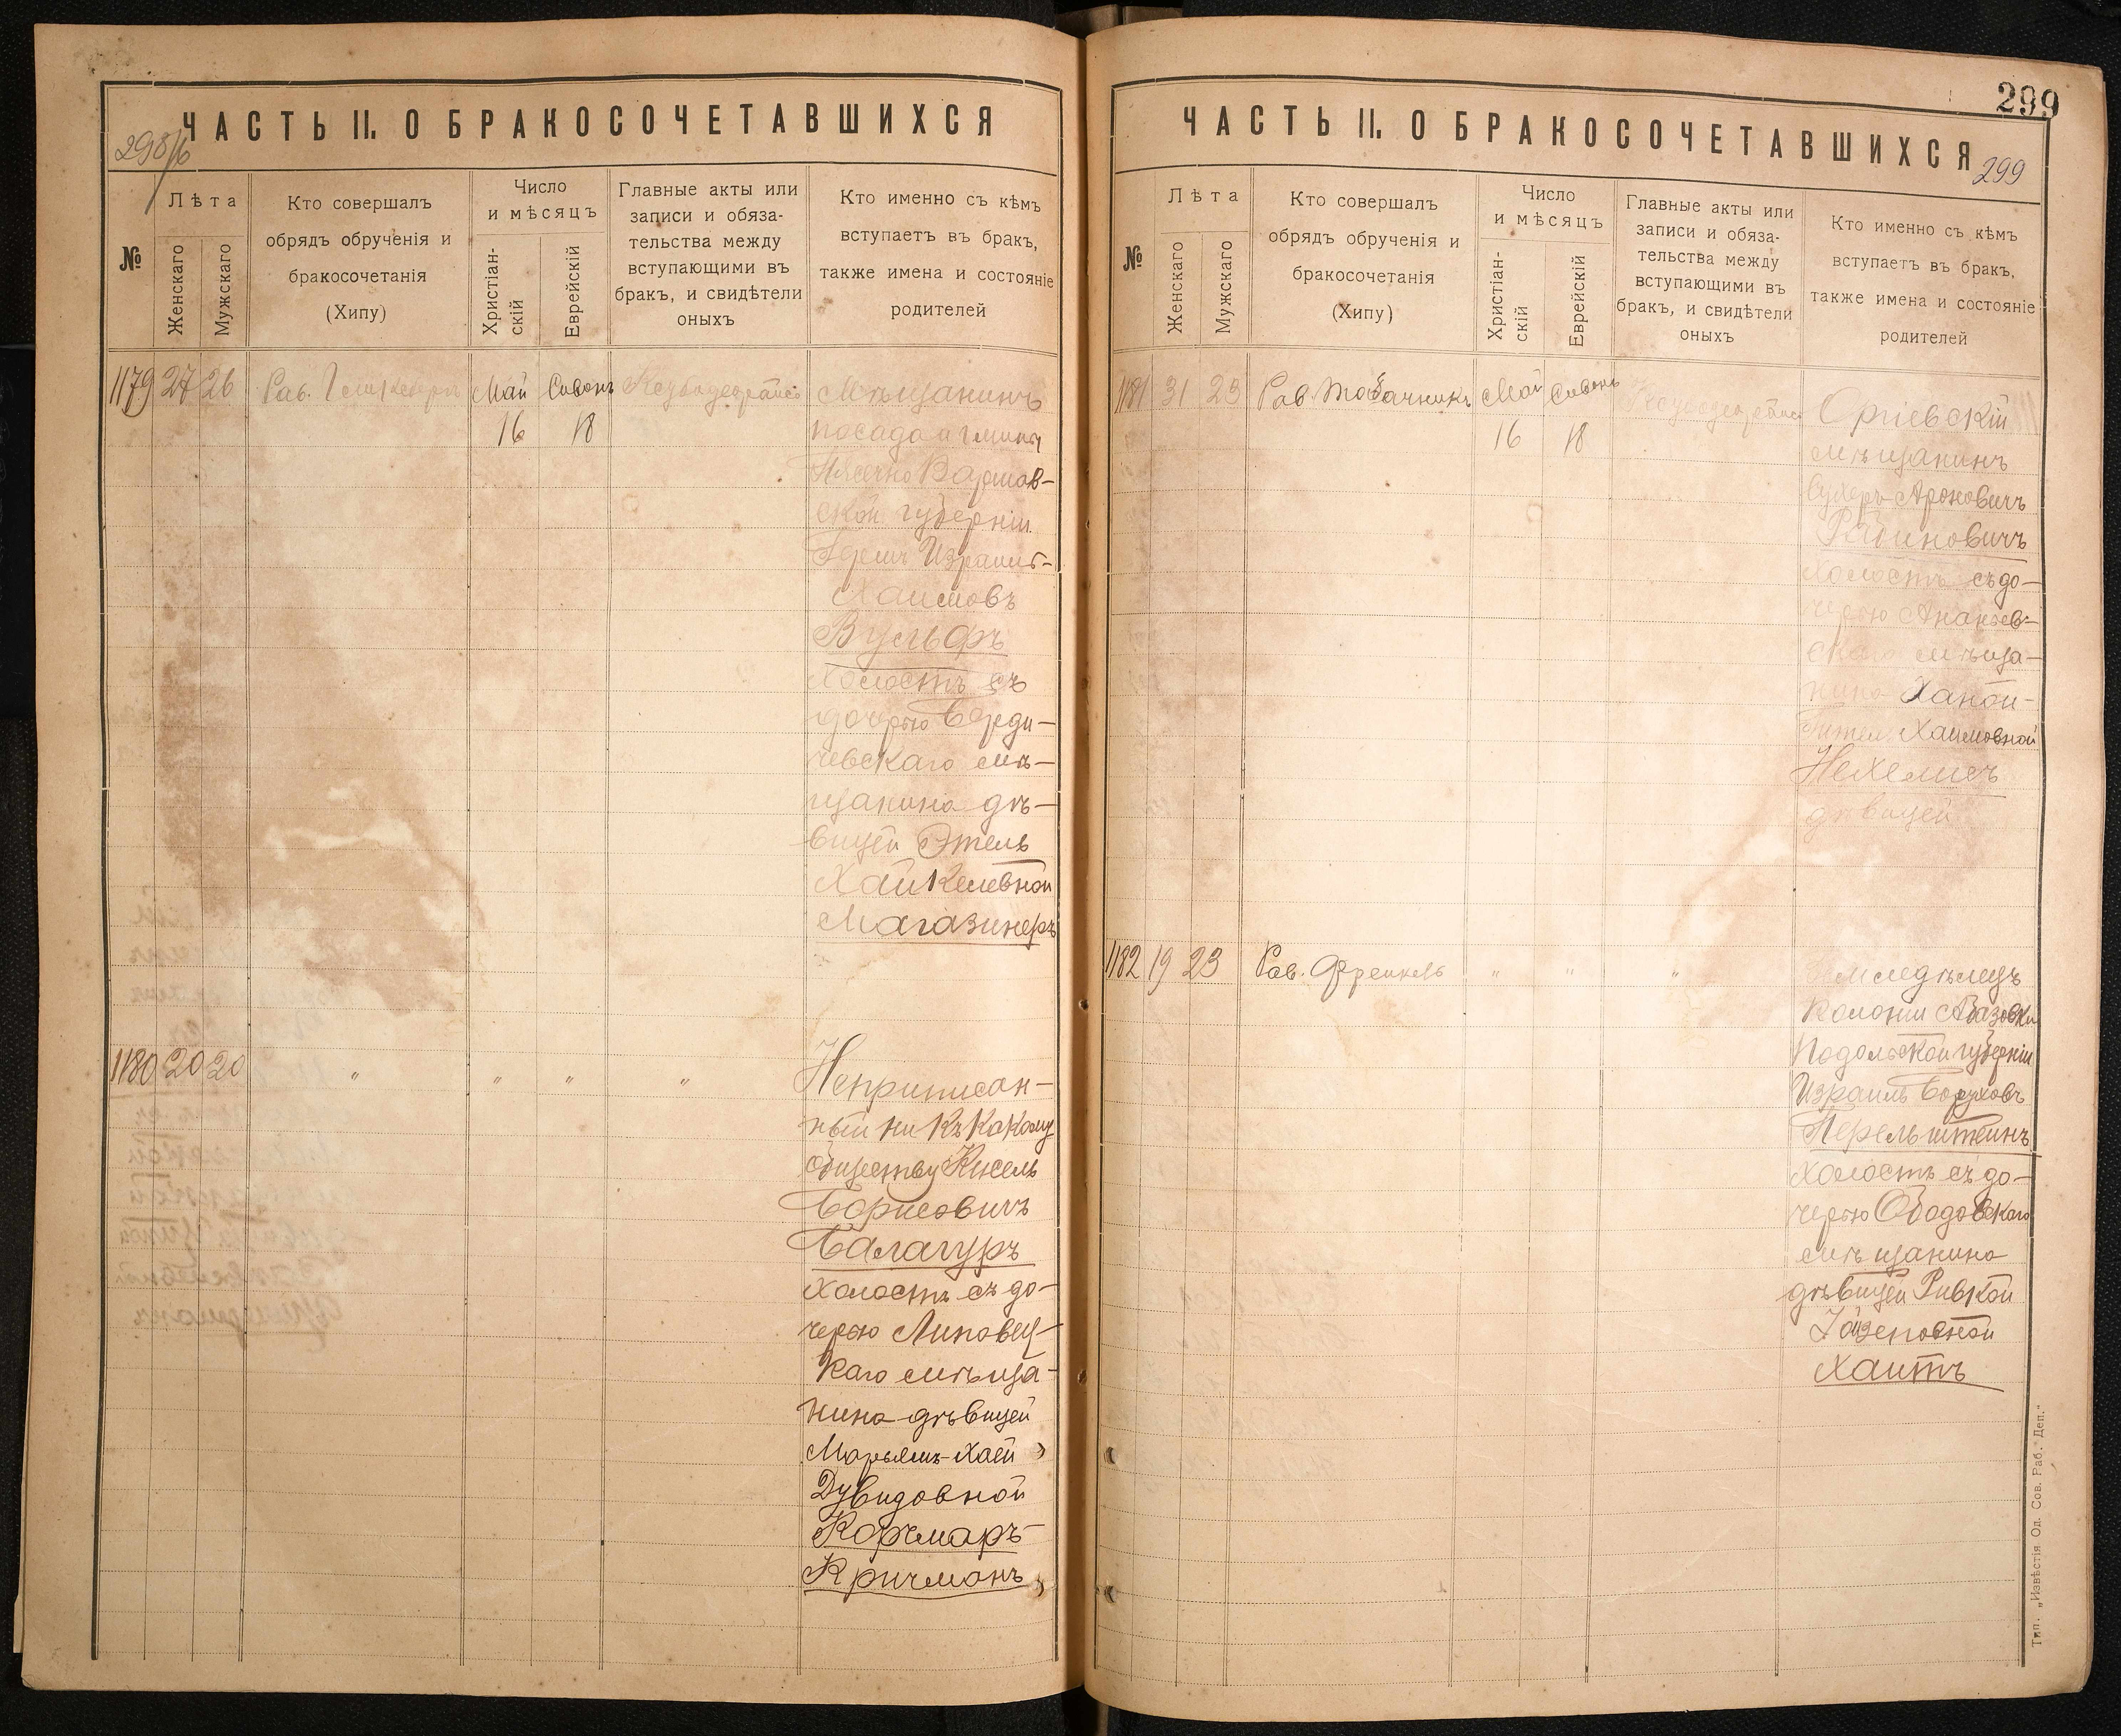 ЧАСТЬ II. О БРАКОСОЧЕТАВШИХСЯ
298/б
№
Лѣта
Женскаго
Мужскаго
Кто совершалъ
обрядъ обрученія и
бракосочетанія
(Хипу)
Число
и мѣсяцъ
Христіан-
скій
Еврейскій
Главные акты или
записи и обяза-
тельства между
вступающими въ
бракъ, и свидѣтели
оныхъ
Кто именно съ кѣмъ
вступаетъ въ бракъ,
также имена и состояніе
родителей
1179 27 26 Рав. Май Сивонъ Мѣщанинъ
16 18 посада и гмины
Пясечно Варшав-
ской губерніи
Израиль-
Хаимовъ
Вульфъ
холостъ съ
дочерью Берди-
чевскаго мѣ-
щанина дѣ-
вицей Этель
Хайкелевной
Магазинеръ
1180 20 20 " " " " Неприписан-
ный ни къ какому
обществу Кисель
Борисовичъ
Балагуръ
холостъ съ до-
черью Липовец-
каго мѣща-
нина дѣвицей
Марьямъ-Хаей
Дувидовной
Корчмаръ-
Кричманъ
299
ЧАСТЬ II. О БРАКОСОЧЕТАВШИХСЯ
299
№
Лѣта
Женскаго
Мужскаго
Кто совершалъ
обрядъ обрученія и
бракосочетанія
(Хипу)
Число
и мѣсяцъ
Христіан-
скій
Еврейскій
Главные акты или
записи и обяза-
тельства между
вступающими въ
бракъ, и свидѣтели
оныхъ
Кто именно съ кѣмъ
вступаетъ въ бракъ,
также имена и состояніе
родителей
1181 31 23 Рав. Табачникъ Май Сивонъ Оргіевскій
16 18 мѣщанинъ
Сухеръ Ароновичъ
Рабиновичъ
холостъ съ до-
черью Ананьев-
скаго мѣща-
нина Ханой-
Гитель Хаимовной
Нехелисъ
дѣвицей
1182 19 23 Рав. Френкель " " " Земледѣлецъ
колоніи Абазовки
Подольской губерніи
Израиль Боруховъ
Перельштейнъ
холостъ съ до-
черью Ободовскаго
мѣщанина
дѣвицей Ривкой
Іойзеповной
Хаитъ
Тип. „Извѣстія Од. Сов. Раб. Деп."